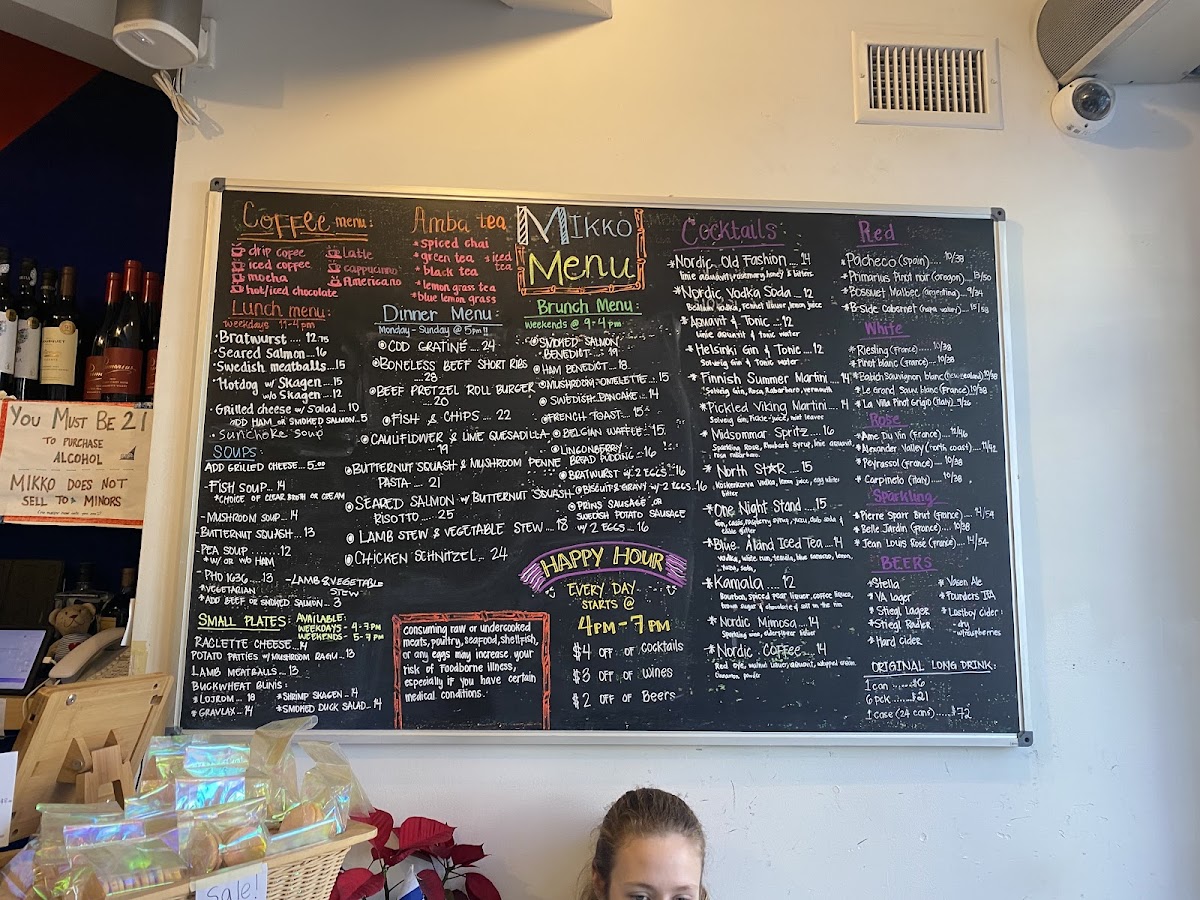 Coffee menu:
drip cofee
iced coffee
mocha
hot/iced chocolate
Latte
cappuccino
Americano
Amba tea
*spiced chai
*green tea
*iced tea
*black tea
*lemon grass tea
*blue lemon grass
MIKKO
Menu
Lunch menu:
weekdays 11-4 pm
·Bratwurst .... 12.75
·Seared Salmon .. 16
·Swedish meatballs ... 15
·Hotdog w/ Skagen .... 15
w/o Skagen .... 12
·Grilled cheese w/ Salad .. 10
ADD HAM or SMOKED SALMON .. 5
·Sunchoke soup
SOUPS
ADD GRILLED CHEESE... 5.00
-FISH SOUP .. 14
*CHOICE OF CLEAR BROTH OR CREAM
-MUSHROOM SOUP... 14
-BUTTERNUT SQUASH.. 13
-PEA SOUP ....... 12
*W/ OR W/O HAM
-PHO 1636 .... 13
*VEGETARIAN
*ADD BEEF OR SMOKED SALMON .. 3
-LAMB & VEGETABLE
STEW
SMALL PLATES:
AVAILABLE:
WEEKDAYS - 4-7 PM
WEEKENDS - 5-7 PM
RACLETTE CHEESE .. 14
POTATO PATTIES W/ MUSHROOM RAGU .. 13
LAMB MEATBALLS .. 13
BUCKWHEAT BLINIS:
*LOJROM .. 18
*GRAVLAX .. 14
*SHRIMP SKAGEN .. 14
*SMOKED DUCK SALAD .. 14
Dinner Menu:
Monday - Sunday @ 5pm!!
COD GRATINÉ ... 24
BONELESS BEEF SHORT RIBS
... 28
BEEF PRETZEL ROLL BURGER
... 20
FISH & CHIPS ... 22
CAULIFLOWER & LIME QUESADILLA
... 19
BUTTERNUT SQUASH & MUSHROOM PENNE
PASTA ... 21
SEARED SALMON W/ BUTTERNUT SQUASH
RISOTTO .... 25
LAMB STEW & VEGETABLE STEW ... 18
CHICKEN SCHNITZEL ... 24
consuming raw or undercooked
meats, poultry, seafood, shellfish,
or any eggs may increase your
risk of Foodborne illness,
especially if you have certain
medical conditions.
Brunch Menu:
weekends @ 9-4 pm
SMOKED SALMON
BENEDICT... 19
HAM BENEDICT ... 18
MUSHROOM OMELETTE .. 15
SWEDISH PANCAKE .. 14
FRENCH TOAST ... 15
BELGIAN WAFFLE .. 15
LINGONBERRY
BREAD PUDDING .. 16
BRATWURST W/ 2 EGGS .. 16
BISCUIT & GRAVY W/ 2 EGGS .. 16
PRINS SAUSAGE OR
SWEDISH POTATO SAUSAGE
W/ 2 EGGS .. 16
HAPPY HOUR
EVERY DAY
STARTS @
4PM - 7PM
$4 OFF OF COCKTAILS
$3 OFF OF WINES
$2 OFF OF Beers
Cocktails
*Nordic Old Fashion ... 14
linie aquavit, rosemary, honey & bitters
*Nordic Vodka Soda ... 12
*Aquavit & Tonic .. 12
Linie aquavit & tonic water
*Helsinki Gin & Tonic ... 12
*Finnish Summer Martini ... 14
*Pickled Viking Martini ... 14
*Midsommar Spritz ... 16
*North STAR ... 15
*One Night Stand ... 15
*Blue Åland Iced Tea ... 14
*Kamala ... 12
*Nordic Mimosa ... 14
*Nordic Coffee .. 14
Red
*Pacheco (spain) .... 10/38
*Primarius Pinot noir (oregon) ... 13/50
*Bosquet Malbec (argentina) ... 9/34
*B-Side Cabernet (napa valley) ... 15/58
White
*Riesling (France) .... 10/38
*Pinot blanc (france) .... 10/38
*Babich Sauvignon blanc (new zealand) 10/38
*Le Grand Saint blanc (France) 10/38
*La Villa Pinot Grigio (Italy) .. 9/26
Rose
*Ame Du Vin (France) .... 12/46
*Alexander Valley (north coast) ... 11/42
*Peyrassol (France) .... 10/38
*Carpineto (italy) .... 10/38
Sparkling
*Pierre Sparr Brut (France) ... 14/54
*Belle Jardin (France) .. 10/38
*Jean Louis Rosé (France) .... 14/54
BEERS
*Stella
*VA lager
*Stiegl Lager
*Stiegl Radler
*Hard cider
*Vasen Ale
*Founders IPA
*Lostboy cider:
- dry
- w/raspberries
ORIGINAL LONG DRINK:
1 can ..... $6
6 pck ..... $21
1 case (24 cans) ..... $72
YOU MUST BE 21
TO PURCHASE
ALCOHOL
MIKKO DOES NOT
SELL TO MINORS
Sale!